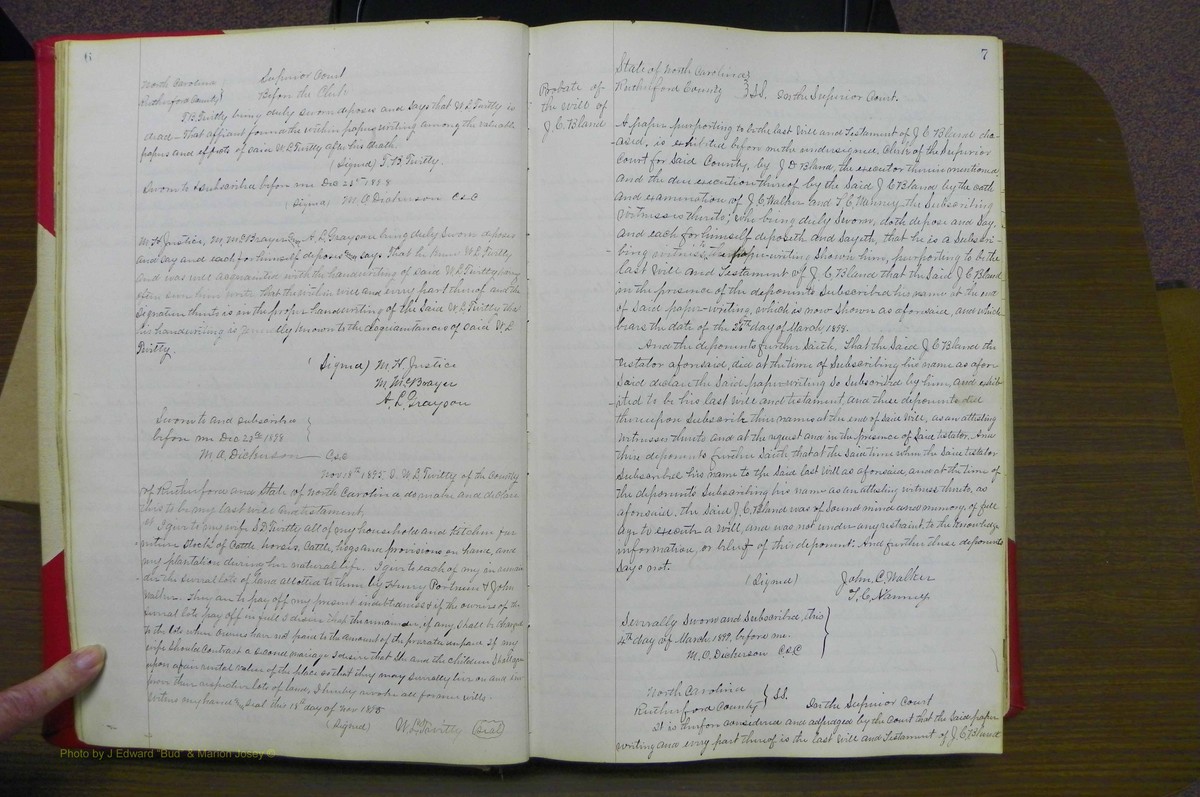 6
North Carolina } Superior Court
Rutherford County } Before the Clerk
T. B. Twitty being duly sworn deposes and says that W. L. Twitty is
dead - That affiant found the within paper writing among the valuable
papers and effects of said W. L. Twitty after his death.
(Signed) T. B. Twitty.
Sworn to & subscribed before me Dec 28th 1898
(Signed) M. O. Dickerson C.S.C
M. H. Justice, M. McBrayer and A. L. Grayson being duly sworn deposes
and say and each for himself deposes and says That he knew W. L. Twitty
and was well acquainted with the handwriting of said W. L. Twitty
seen him write that the within will and every part thereof and the
signature thereto is in the proper handwriting of the said W L Twitty
his handwriting is generally known to the acquaintances of said W. L.
Twitty.
(Signed) M. H. Justice
M. McBrayer
A. L. Grayson
Sworn to and subscribed }
before me Dec 28th 1898 }
M. O. Dickerson C.S.C
Nov 18th 1895 I, W. L. Twitty of the County
of Rutherford and State of North Carolina do make and declare
this to be my last will and testament,
1st I give to my wife S. D. Twitty all of my household and kitchen fur
niture Stock of Cattle horses, Cattle, hogs and provisions on hand, and
my plantation during her natural life. I give to each of my
the several lots of land allotted to them by Henry Portrum & John
Walker. They are to pay off my present indebtedness & if the owners of the
several lots pay off in full I desire that the remainder, if any shall be charged
to the lots whose owners have not paid to the amount of the prorata unpaid If my
wife should contract a second mariage I desire that she and the children shall agree
upon a fair rental value of the place so that they may severally live on and
their respective lots of land, I hereby revoke all former wills.
Witness my hand and seal this 18th day of Nov 1895
(Signed) W. L. Twitty (Seal)
7
Probate of
the will of
J. C. Bland
State of North Carolina }
Rutherford County } S.S. In the Superior Court.
A paper purporting to be the last Will and Testament of J. C. Bland de
ceased, is exhibited before me the undersigned, Clerk of the Superior
Court for Said County, by J. D. Bland, the executor therein mentioned
and the due execution thereof by the Said J. C. Bland by the oath
and examination of J. C. Walker and T. C. Nanney the Subscribing
Witnesses thereto; who being duly Sworn, doth depose and Say,
and each for himself deposeth and Sayeth, that he is a Subscri-
bing witness to the paper-writing Shown him, purporting to be the
last Will and Testament of J. C. Bland that the Said J. C. Bland
in the presence of the deponents Subscribed his name at the end
of Said paper-writing, which is now Shown as aforesaid, and which
bears the date of the 26th day of March, 1898.
And the deponents further Saith, That the Said J. C. Bland the
testator aforesaid, did at the time of Subscribing his name as afore
Said declare the Said paper-writing So Subscribed by him, and exhib
ited to be his last will and testament, and these deponents did
thereupon Subscribe their names at the end of Said Will, as an attesting
witnesses thereto and at the request and in the presence of Said testator. And
these deponents further Saith, that at the Said time when the Said testator
Subscribed his name to the Said last Will as aforesaid, and at the time of
the deponents Subscribing his name as an attesting witness thereto, as
aforesaid, the Said J. C. Bland was of Sound mind and memory, of full
age to execute a Will, and was not under any restraint, to the knowledge
information, or belief of this deponent: And further these deponents
Says not.
(Signed) John. C. Walker
T. C. Nanney
Severally Sworn and Subscribed, this }
4th day of March 1899, before me. }
M. O. Dickerson C.S.C }
North Carolina }
Rutherford County } S.S. In the Superior Court
It is therefore considered and adjudged by the Court that the Said paper
writing and every part thereof is the last Will and Testament of J. C. Bland
Photo by J Edward "Bud" & Marion Josey ©